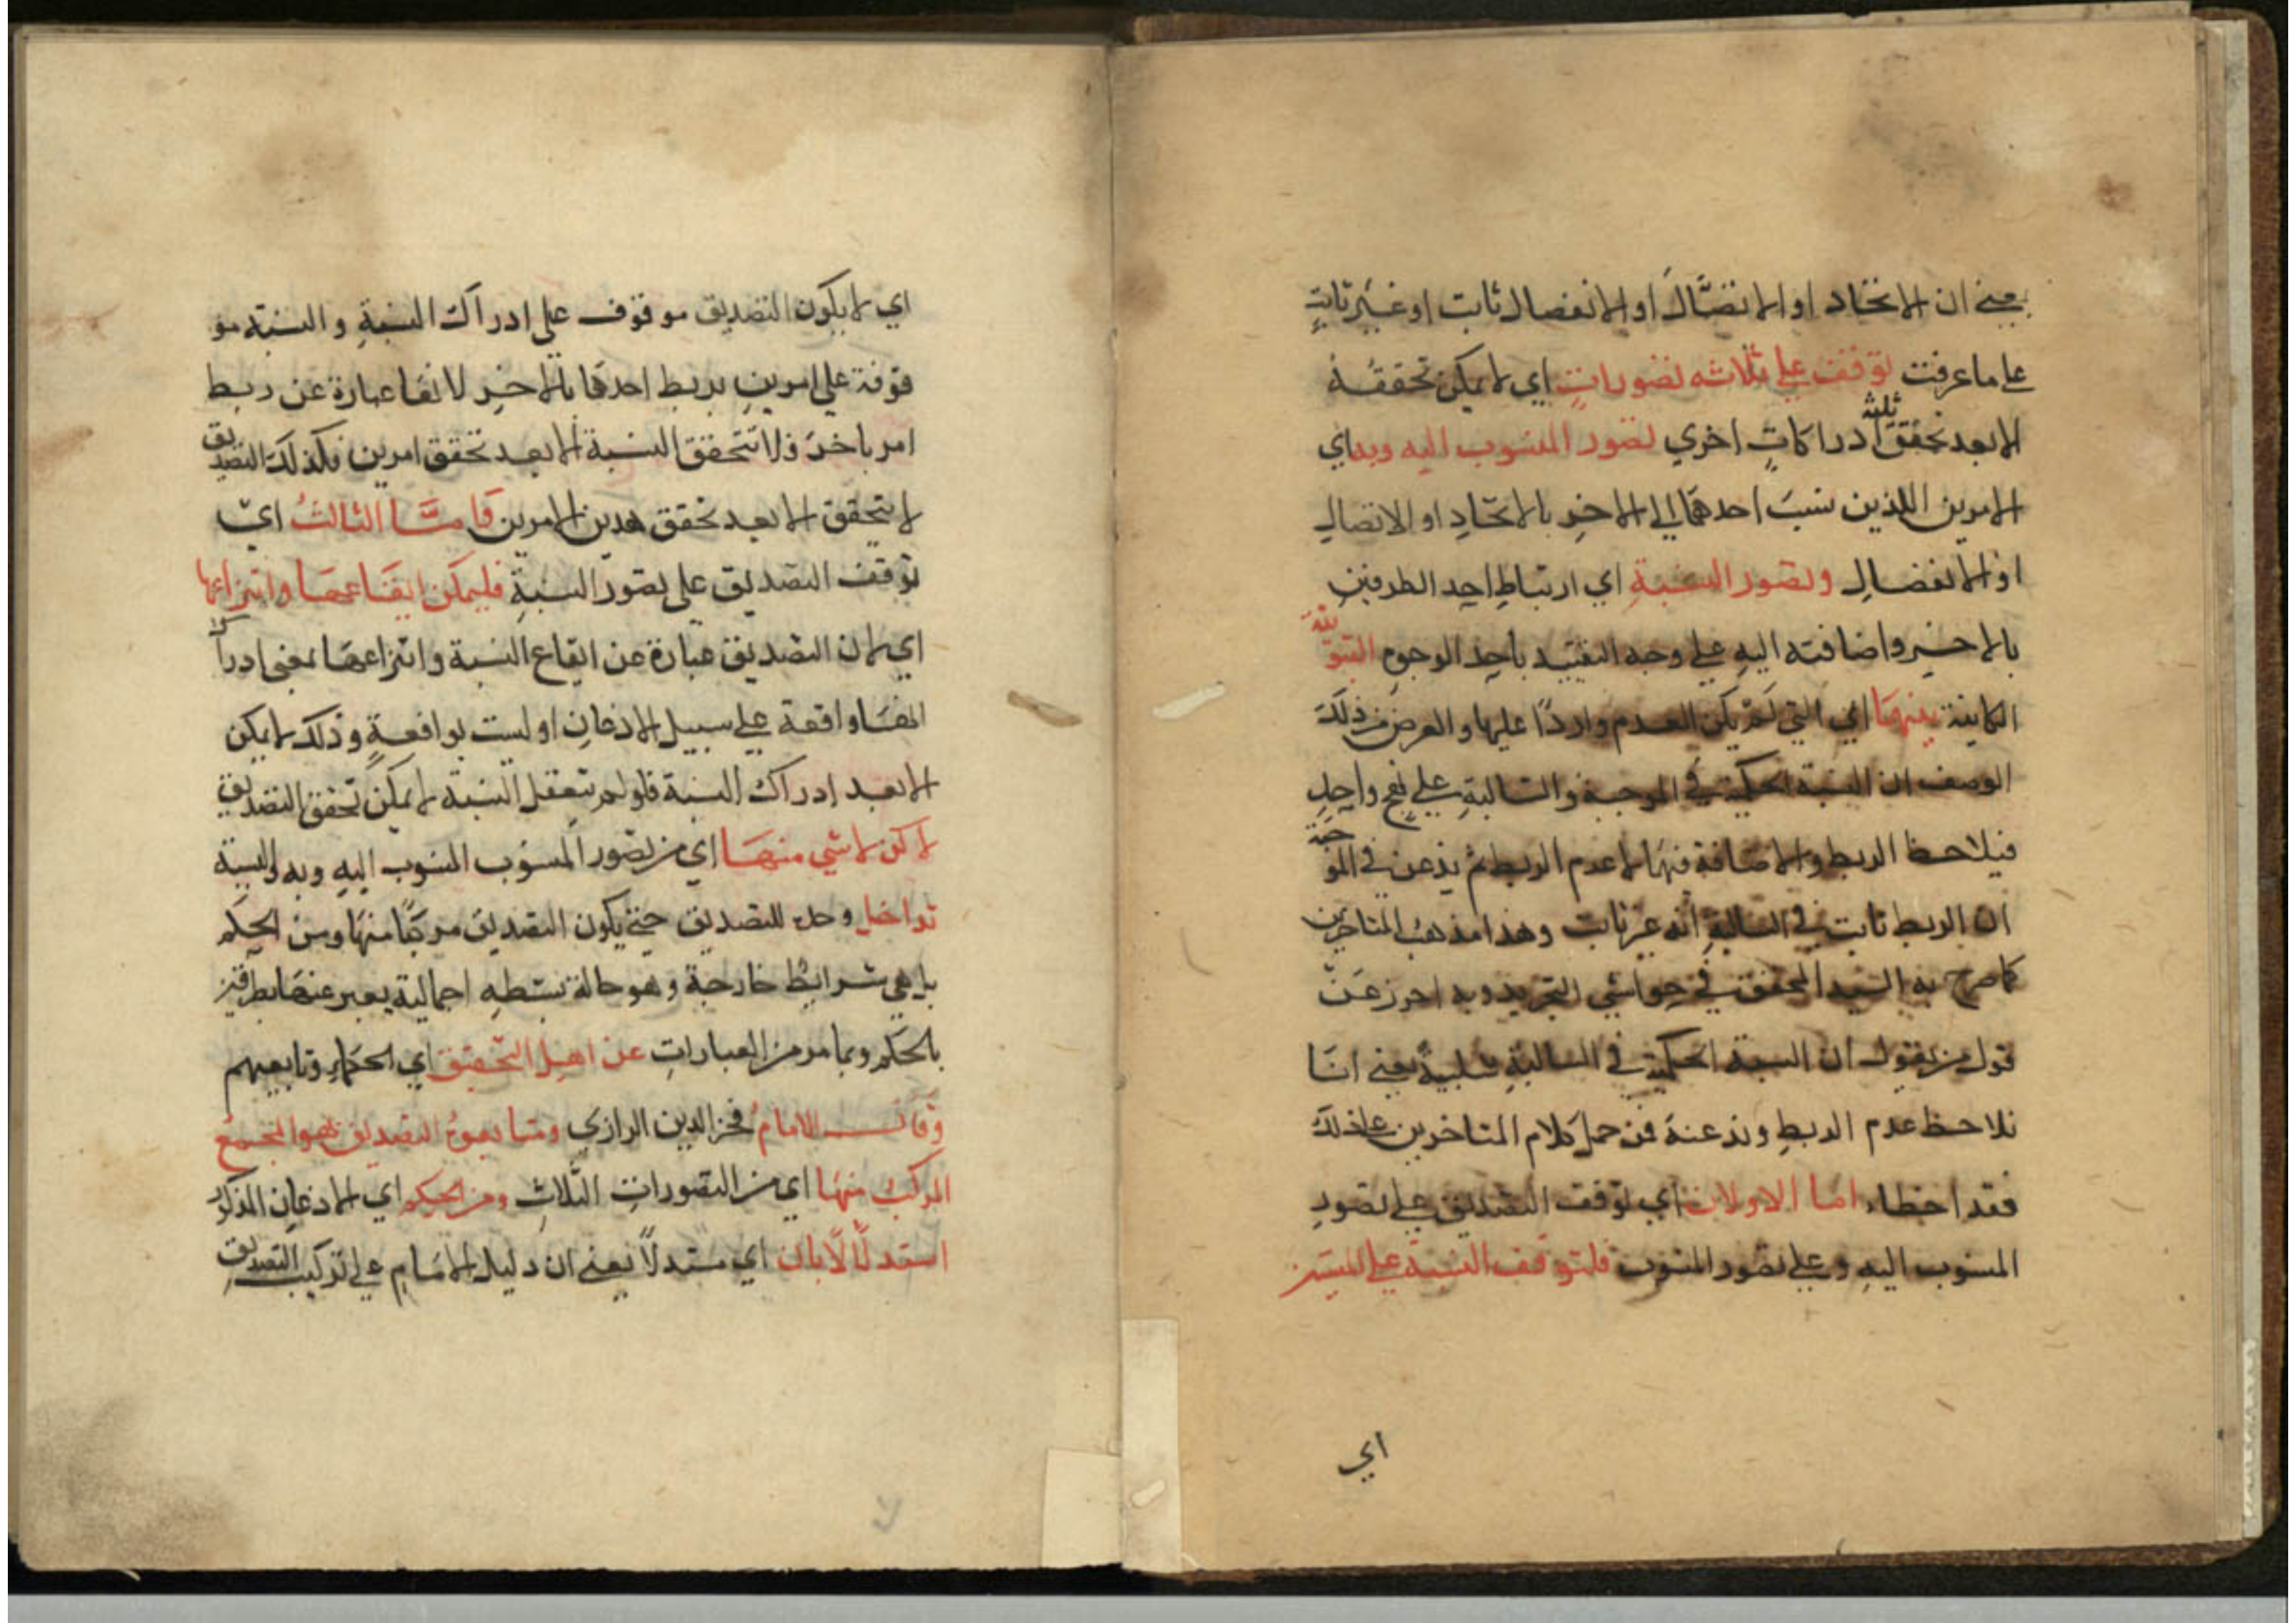 يعني ان الاتحاد او الاتصال او الانفصال ثابت او غير ثابت
على ما عرفت توقف على ثلاثه تصورات اي لا يمكن تحققه
الا بعد تحقق ثلثة ادراكات اخري تصور المنسوب اليه وبه اي
الامرين اللذين نسب احدهما الى الاخر بالاتحاد او الاتصال
او الانفصال وتصور النسبة اي ارتباط احد الطرفين
بالاخر واضافته اليه على وجه التقييد باحد الوجوه الثبوتية
الكاينة بينهما اي التي لم يكن العدم واردا عليها والغرض من ذلك
الوصف ان النسبة الحكمية في الموجبة والسالبة على نهج واحد
فيلاحظ الربط والاضافة فيها لا عدم الربط ثم يذعن في الموجبة
ان الربط ثابت في السالبة انه غير ثابت وهذا مذهب المتاخرين
كما صرح به السيد المحقق في حواشي التجريد وبه احرز عن
قول من يقول ان النسبة الحكمية في السالبة سلبية يعني انا
نلاحظ عدم الربط ونذعنه فمن حمل كلام المتاخرين على ذلك
فقد اخطاء اما الاولان اي توقف التصديق على تصور
المنسوب اليه وعلى تصور المنسوب فلتوقف النسبة على
اي
اي لا يكون التصديق موقوف على ادراك النسبة والنسبة مو
قوفة على امرين بربط احدهما بالاخر لانها عبارة عن ربط
امر باخر فلا تتحقق النسبة الا بعد تحقق امرين فكذلك التصديق
لا يتحقق الا بعد تحقق هدين الامرين واما الثالث اي
توقف التصديق على تصور النسبة فليمكن ايقاعها وانتزاعها
اي لان التصديق عبارة عن ايقاع النسبة وانتزاعها بمعنى ادراك
انها واقعة على سبيل الاذعان او ليست بواقعة وذلك لا يمكن
الا بعد ادراك النسبة فلو لم تتعقل النسبة لا يمكن تحقق التصديق
لاكن لا شي منها اي من تصور المنسوب المنسوب اليه وبه والنسبة
تداخل وحل للتصديق حتى يكون التصديق مركبا منها ومن الحكم
بل هي شرايط خارجة وهو حالة بسطه اجمالية يعبر عنها
بالحكم وبما مر من العبارات عن اهل التحقيق اي الحكماء وتابعيهم
وقال الامام فخر الدين الرازي ومتابعوه التصديق هو المجموع
المركب منها اي من التصورات الثلاث ومن الحكم اي الاذعان المذكور
استدلالا بان اي مستدلا يعني ان دليل الامام على تركيب التصديق